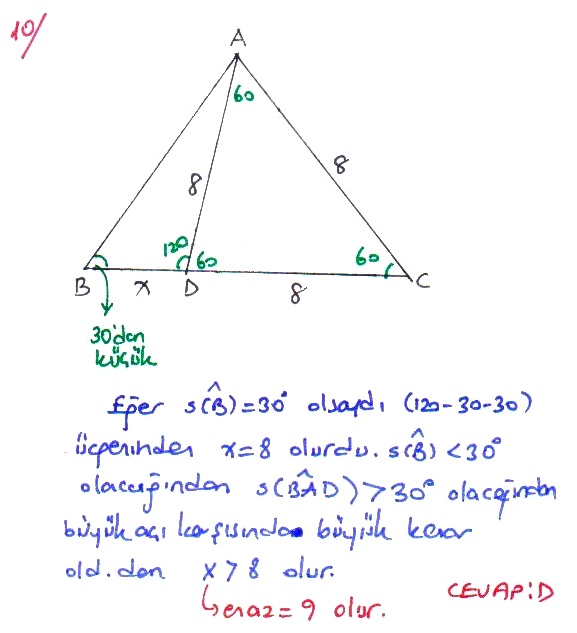 10/
A
60
8
8
120
60
60
B
x
D
8
C
30'dan
küçük
Eğer s(B̂)=30° olsaydı (120-30-30)
üçgeninden x=8 olurdu. s(B̂) <30°
olacağından s(BÂD)>30° olacağından
büyük açı karşısında büyük kenar
old.dan x>8 olur.
↳en az=9 olur.
CEVAP:D